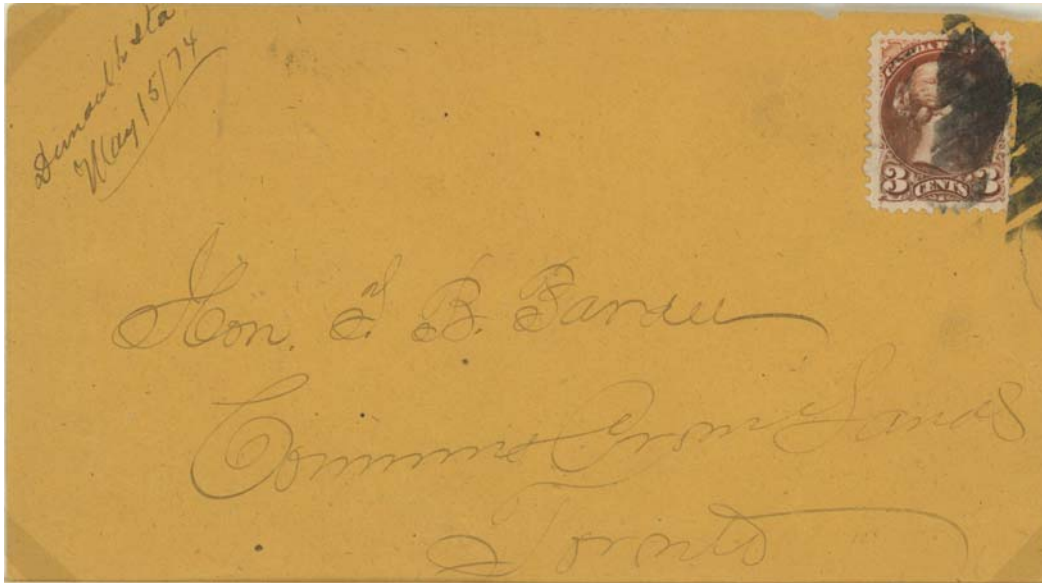 Dundalk Sta
May 15/74
CANADA
3 CENTS 3
Hon. T. B. Pardee
Commr Crown Lands
Toronto